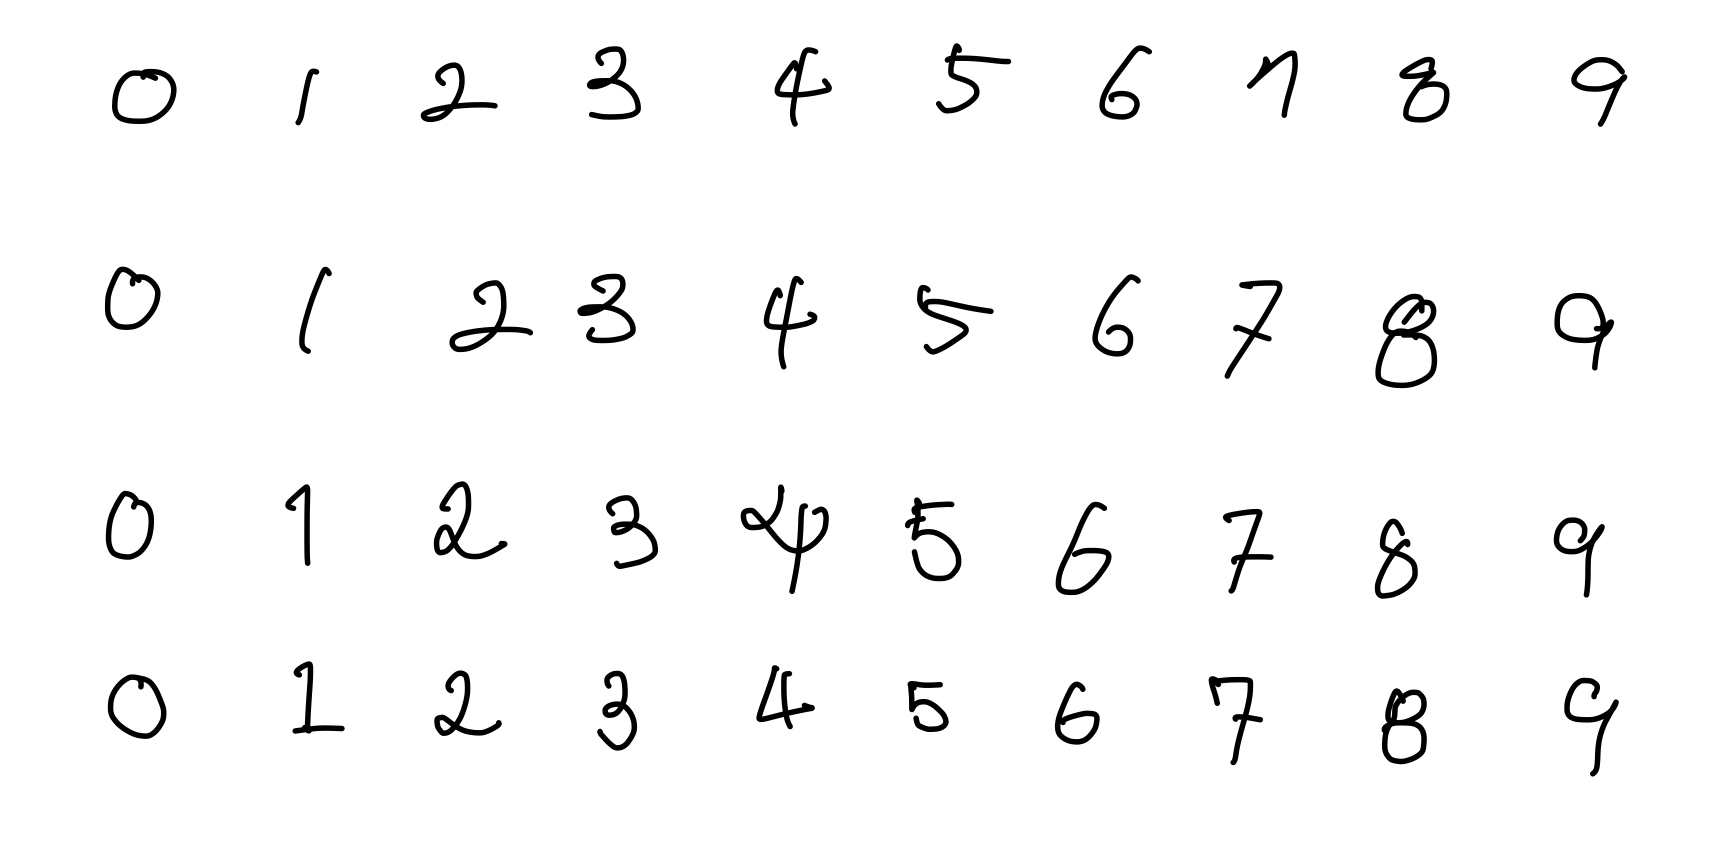 0 1 2 3 4 5 6 7 8 9
0 1 2 3 4 5 6 7 8 9
0 1 2 3 4 5 6 7 8 9
0 1 2 3 4 5 6 7 8 9